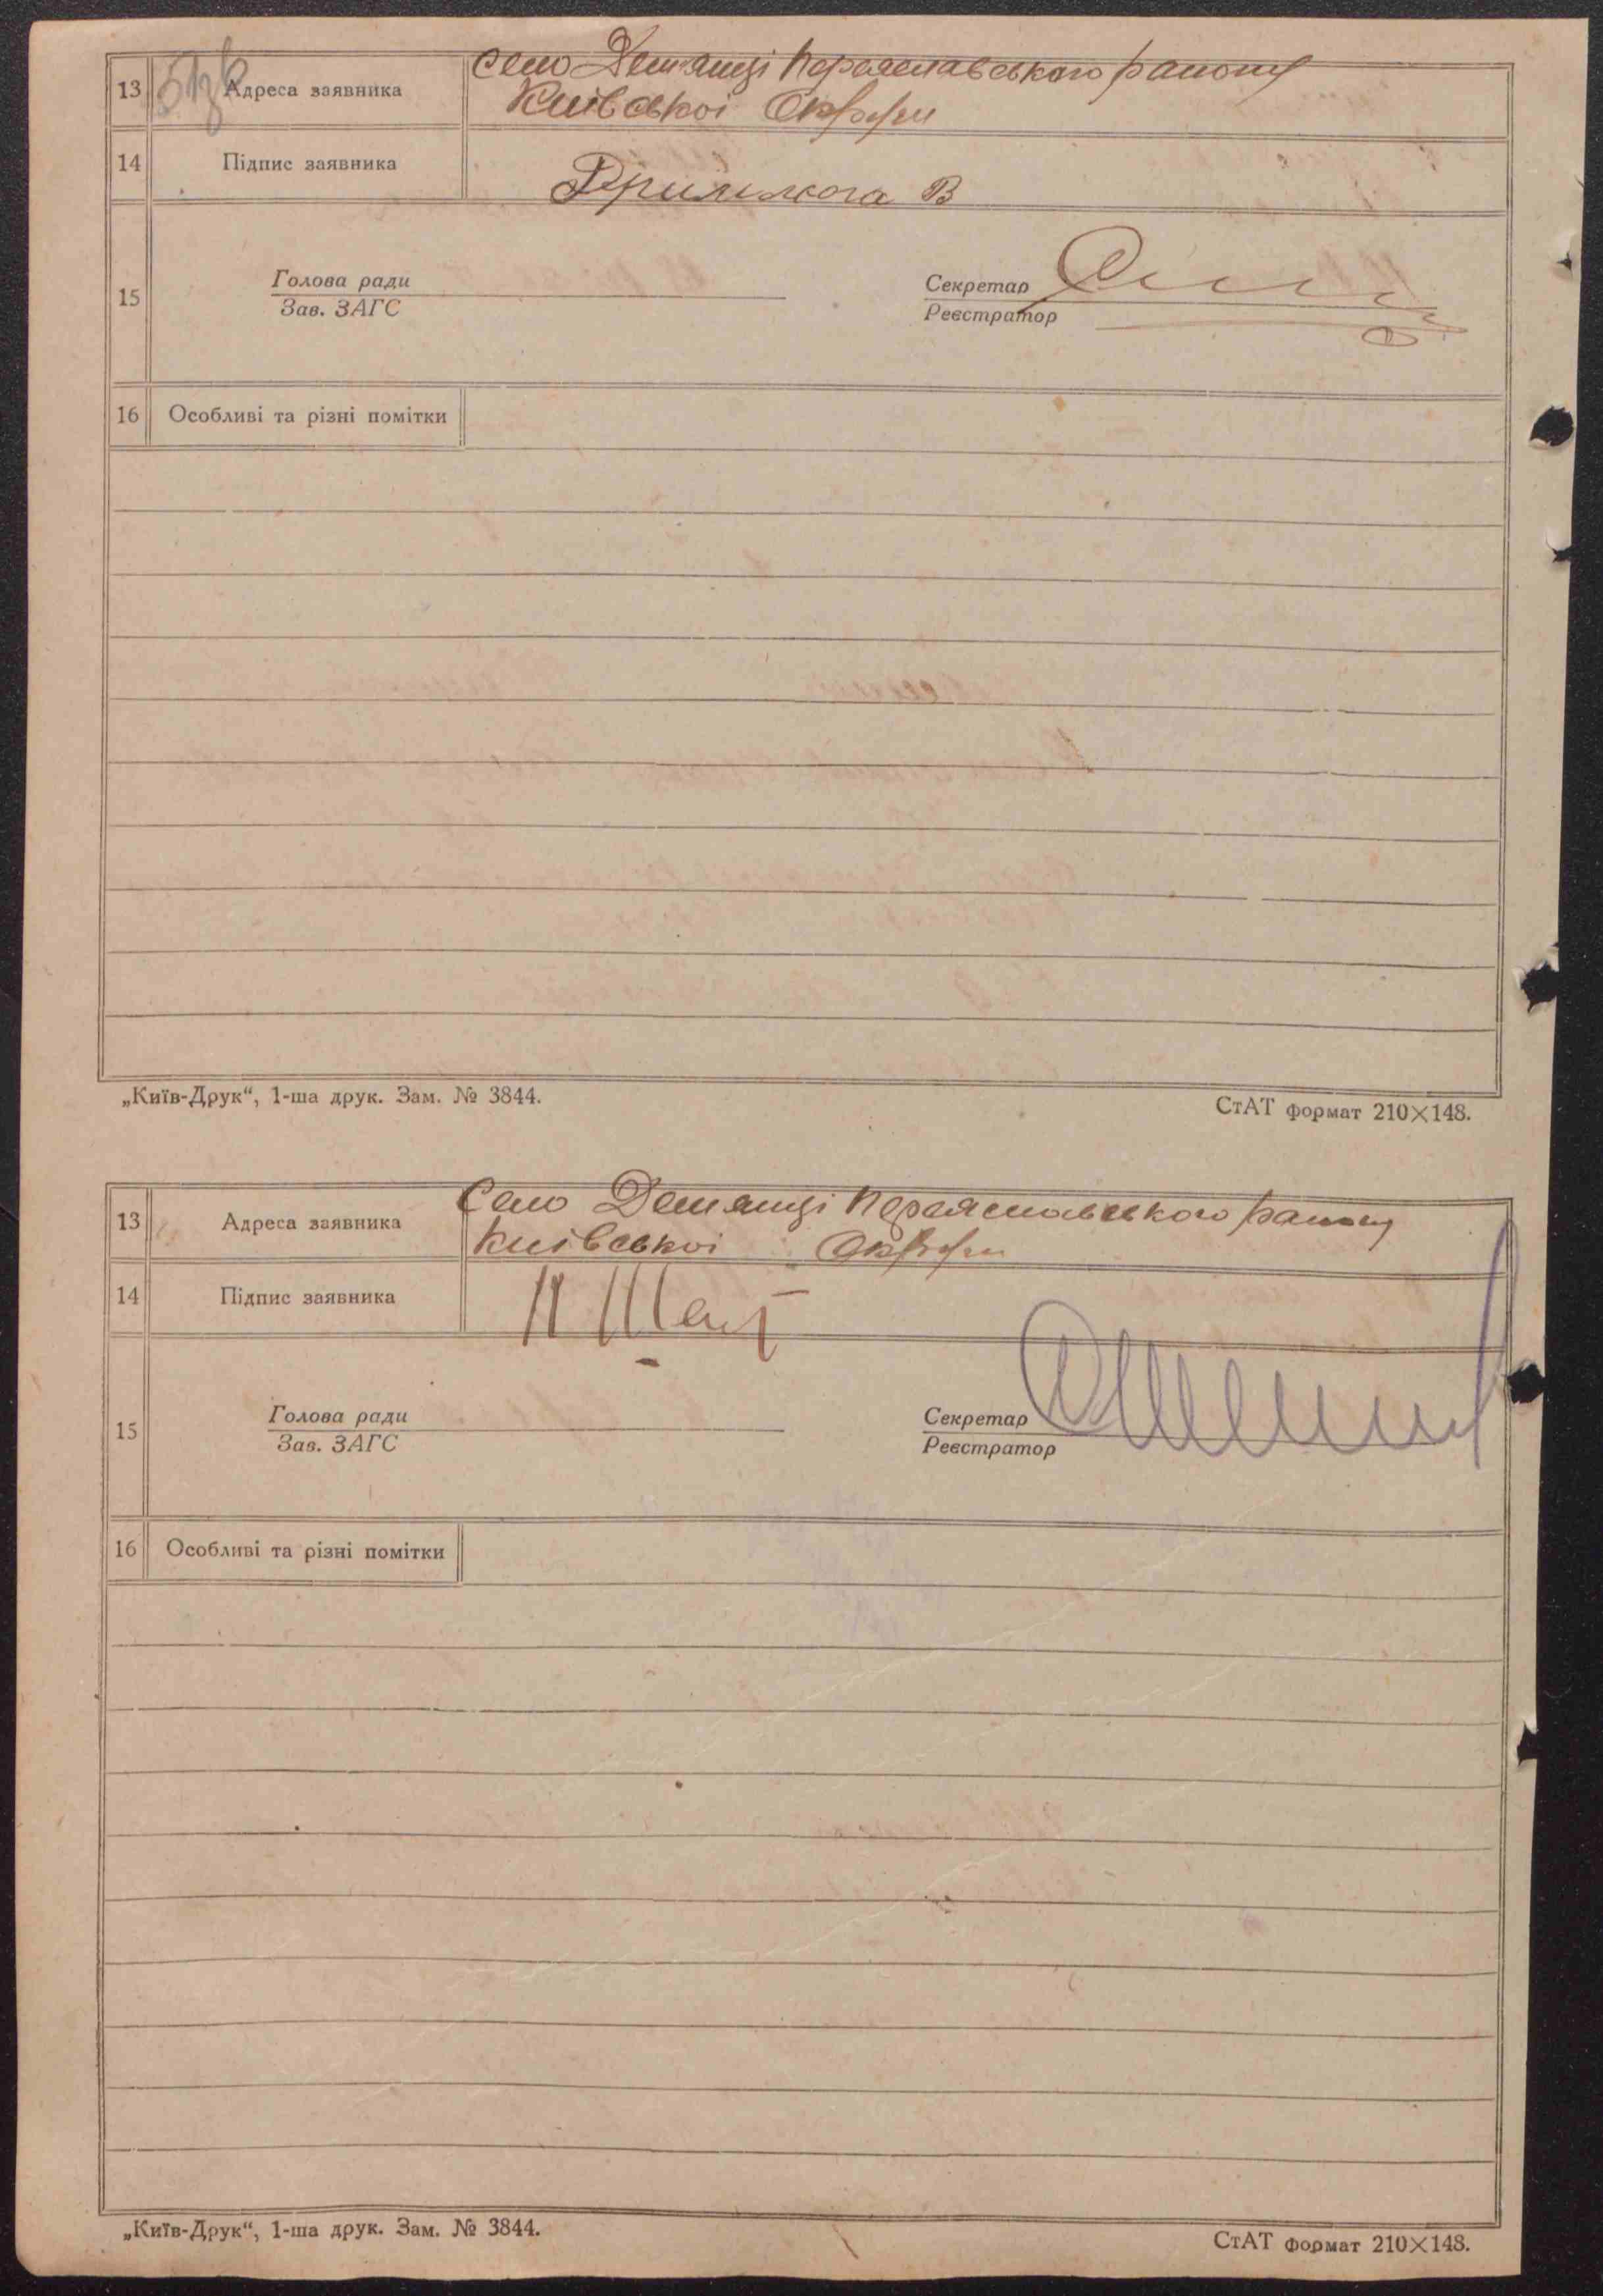 13 Адреса заявника Село Демянці Переяславського району
Київської Округи
14 Підпис заявника В
15 Голова ради Секретар
Зав. ЗАГС Реєстратор
16 Особливі та різні помітки
„Київ-Друк“, 1-ша друк. Зам. № 3844. СтАТ формат 210×148.
13 Адреса заявника Село Демянці Переяславського району
Київської Округи
14 Підпис заявника
15 Голова ради Секретар
Зав. ЗАГС Реєстратор
16 Особливі та різні помітки
„Київ-Друк“, 1-ша друк. Зам. № 3844. СтАТ формат 210×148.